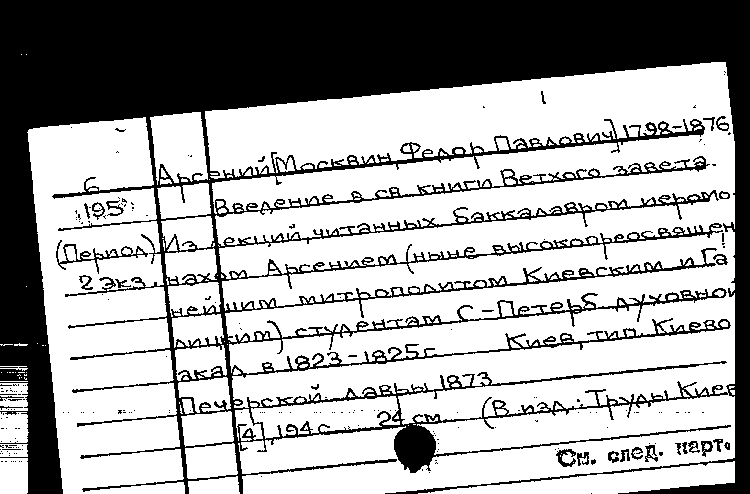 6 Арсений [Москвин, Федор Павлович] 1798-1876
195 Введение в св. книги Ветхого завета.
(Период) Из лекций, читанных баккалавром иеромо-
2 экз. нахом Арсением (ныне высокопреосвящен
нейшим митрополитом Киевским и Га-
лицким) студентам С-Петерб духовной
акад в 1823-1825г Киев, тип. Киево
Печерской лавры, 1873
[4], 194 с 24 см (В изд.: Труды Киев
См. след. карт.